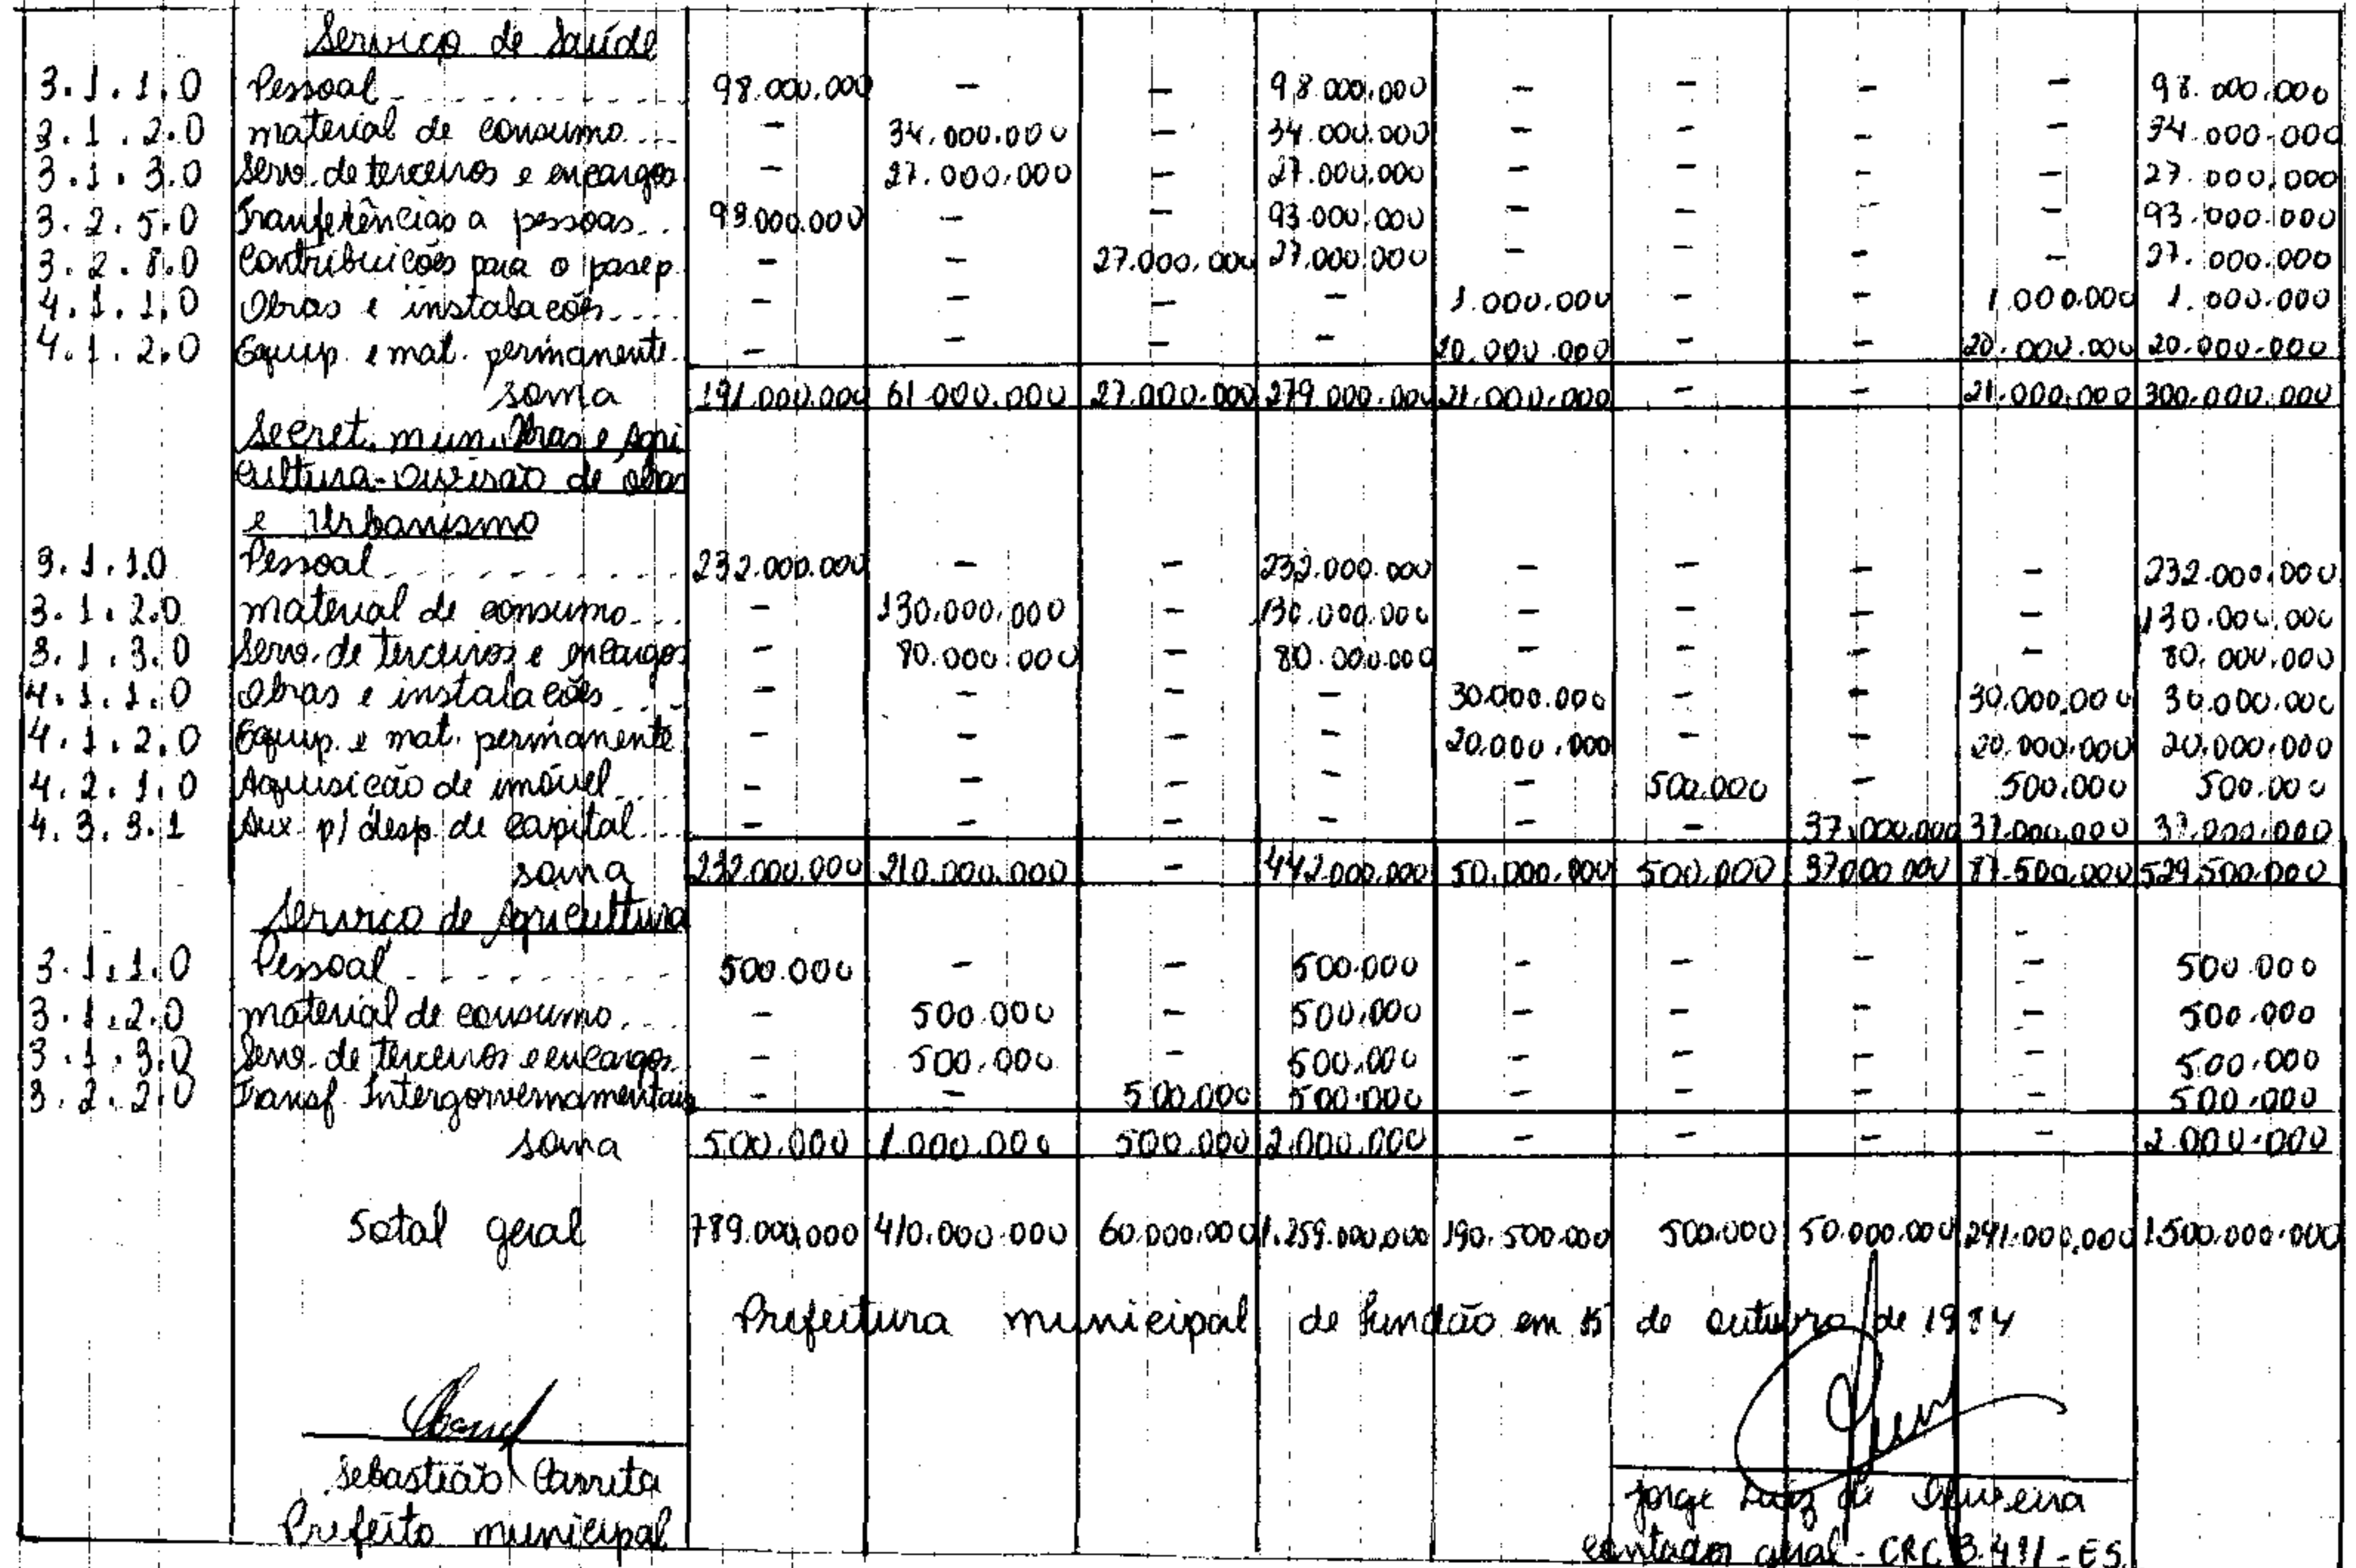 Serviço de Saúde
3.1.1.0 Pessoal 98.000.000 - - 98.000.000 - - - - 98.000.000
3.1.2.0 material de consumo - 34.000.000 - 34.000.000 - - - - 34.000.000
3.1.3.0 Serv. de terceiros e encargos - 27.000.000 - 27.000.000 - - - - 27.000.000
3.2.5.0 Tranferências a pessoas 93.000.000 - - 93.000.000 - - - - 93.000.000
3.2.8.0 Contribuicões para o pasep - - 27.000.000 27.000.000 - - - - 27.000.000
4.1.1.0 Obras e instalacões - - - - 1.000.000 - - 1.000.000 1.000.000
4.1.2.0 Equip. e mat. permanente - - - - 20.000.000 - - 20.000.000 20.000.000
soma 191.000.000 61.000.000 27.000.000 279.000.000 21.000.000 - - 21.000.000 300.000.000
Secret. mun. Obras e Agri
cultura-Divisão de obras
e Urbanismo
3.1.1.0 Pessoal 232.000.000 - - 232.000.000 - - - - 232.000.000
3.1.2.0 material de consumo - 130.000.000 - 130.000.000 - - - - 130.000.000
3.1.3.0 Serv. de terceiros e encargos - 80.000.000 - 80.000.000 - - - - 80.000.000
4.1.1.0 Obras e instalacões - - - - 30.000.000 - - 30.000.000 30.000.000
4.1.2.0 Equip. e mat. permanente - - - - 20.000.000 - - 20.000.000 20.000.000
4.2.1.0 Aquisicão de imóvel - - - - - 500.000 - 500.000 500.000
4.3.3.1 Aux. p/ desp. de capital - - - - - - 37.000.000 37.000.000 37.000.000
soma 232.000.000 210.000.000 - 442.000.000 50.000.000 500.000 37.000.000 87.500.000 529.500.000
Serviço de Agricultura
3.1.1.0 Pessoal 500.000 - - 500.000 - - - - 500.000
3.1.2.0 material de consumo - 500.000 - 500.000 - - - - 500.000
3.1.3.0 Serv. de terceiros e encargos - 500.000 - 500.000 - - - - 500.000
3.2.2.0 Transf. Intergorvernamentais - - 500.000 500.000 - - - - 500.000
soma 500.000 1.000.000 500.000 2.000.000 - - - - 2.000.000
Total geral 789.000.000 410.000.000 60.000.000 1.259.000.000 190.500.000 500.000 50.000.000 241.000.000 1.500.000.000
Prefeitura municipal de Fundão em 15 de outubro de 1984
Sebastião Carreta
Prefeito municipal
Jorge Luiz de Oliveira
contador geral - CRC 3.491 - ES